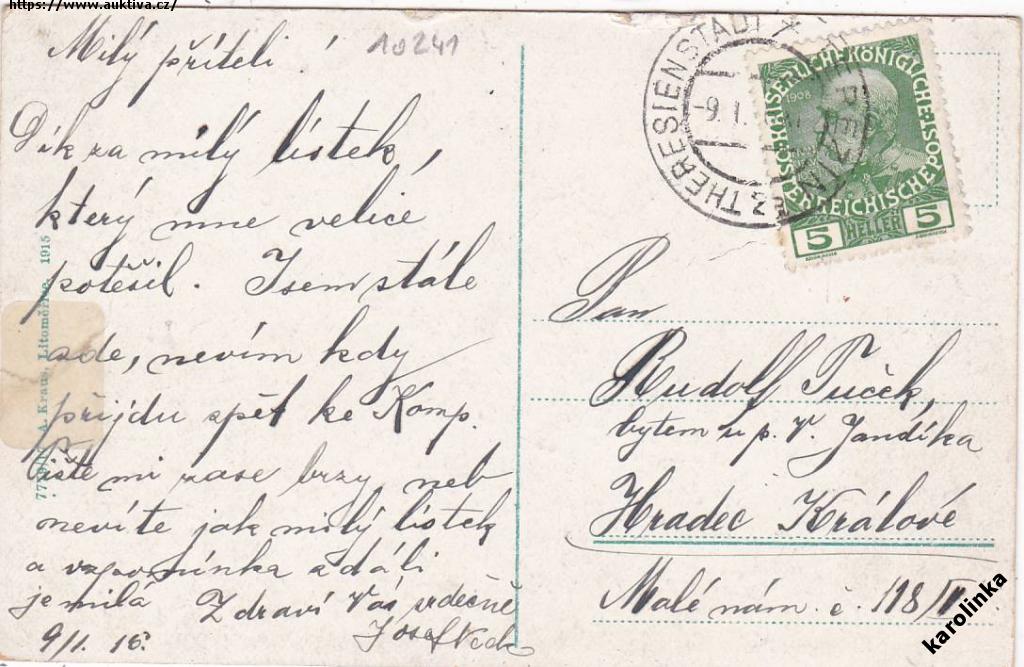 https://www.auktiva.cz/
10241
Milý příteli!
Dík za milý lístek,
který mne velice
potěšil. Jsem stále
zde, nevím kdy
přijdu zpět ke Komp.
Pište mi zase brzy, neb
nevíte jak milý lístek
a vzpomínka z dáli
je milá Zdraví Vás srdečně
9/1. 16. Josef
A. Kraus, Litoměřice, 1915
THERESIENSTADT
TEREZÍN
-9.I.
KAISERLICHE KÖNIGLICHE
ÖSTERREICHISCHE POST
1908
5 HELLER 5
Pan
Rudolf Tuček,
bytem u p. V. Jandíka
Hradec Králové
Malé nám. č. 118/
karolinka